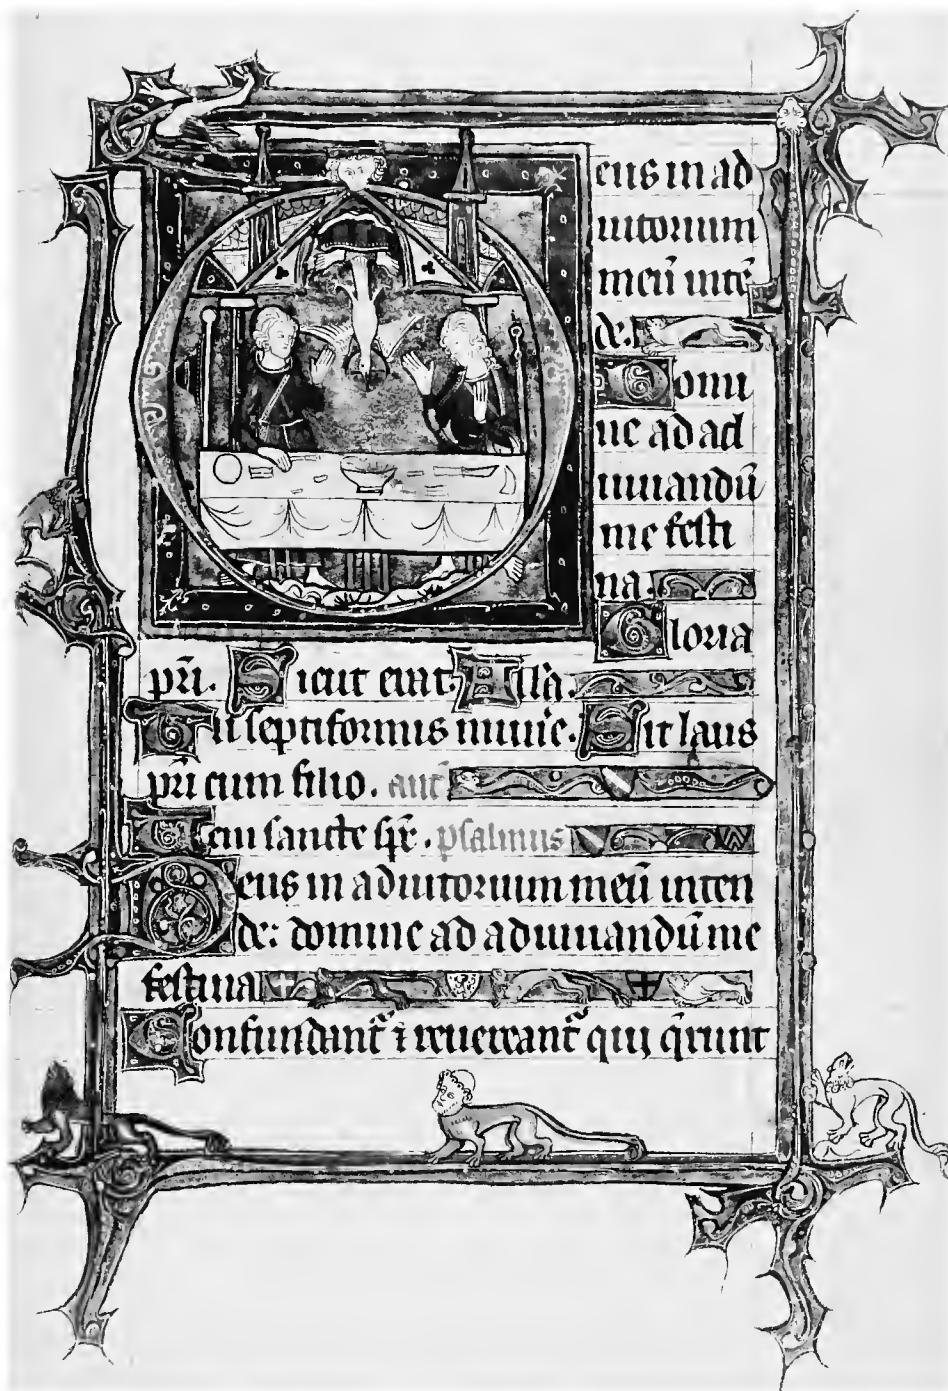 Deus in ad
iutorium
meū inten
de.
Domi
ne ad ad
iuuandū
me festi
na.
Gloria
pr̄i. Sicut erat. All'a.
Tu septiformis mun̄e. Sit laus
pr̄i cum filio. ant̄
Veni sancte sp̄e. psalmus
Deus in adiutorium meū inten
de: domine ad adiuuandū me
festina
Confundant᷑ ⁊ reuereant᷑ qui q̄runt